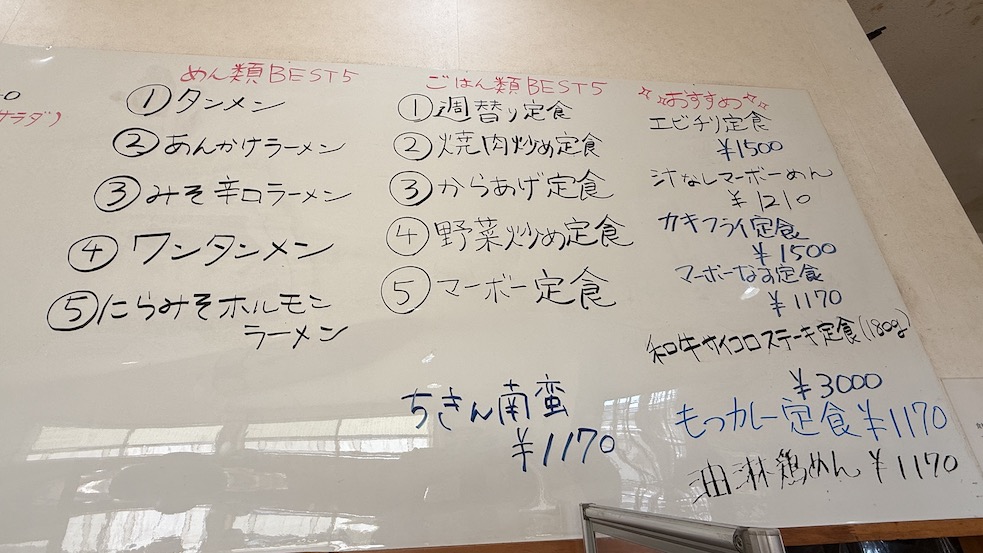 サラダ)
めん類BEST5
①タンメン
②あんかけラーメン
③みそ辛口ラーメン
④ワンタンメン
⑤にらみそホルモン
ラーメン
ごはん類BEST5
①週替り定食
②焼肉炒め定食
③からあげ定食
④野菜炒め定食
⑤マーボー定食
ちきん南蛮
¥1170
☆☆おすすめ☆☆
エビチリ定食
¥1500
汁なしマーボーめん
¥1210
カキフライ定食
¥1500
マーボーなす定食
¥1170
和牛サイコロステーキ定食(180g)
¥3000
もつカレー定食¥1170
油淋鶏めん¥1170